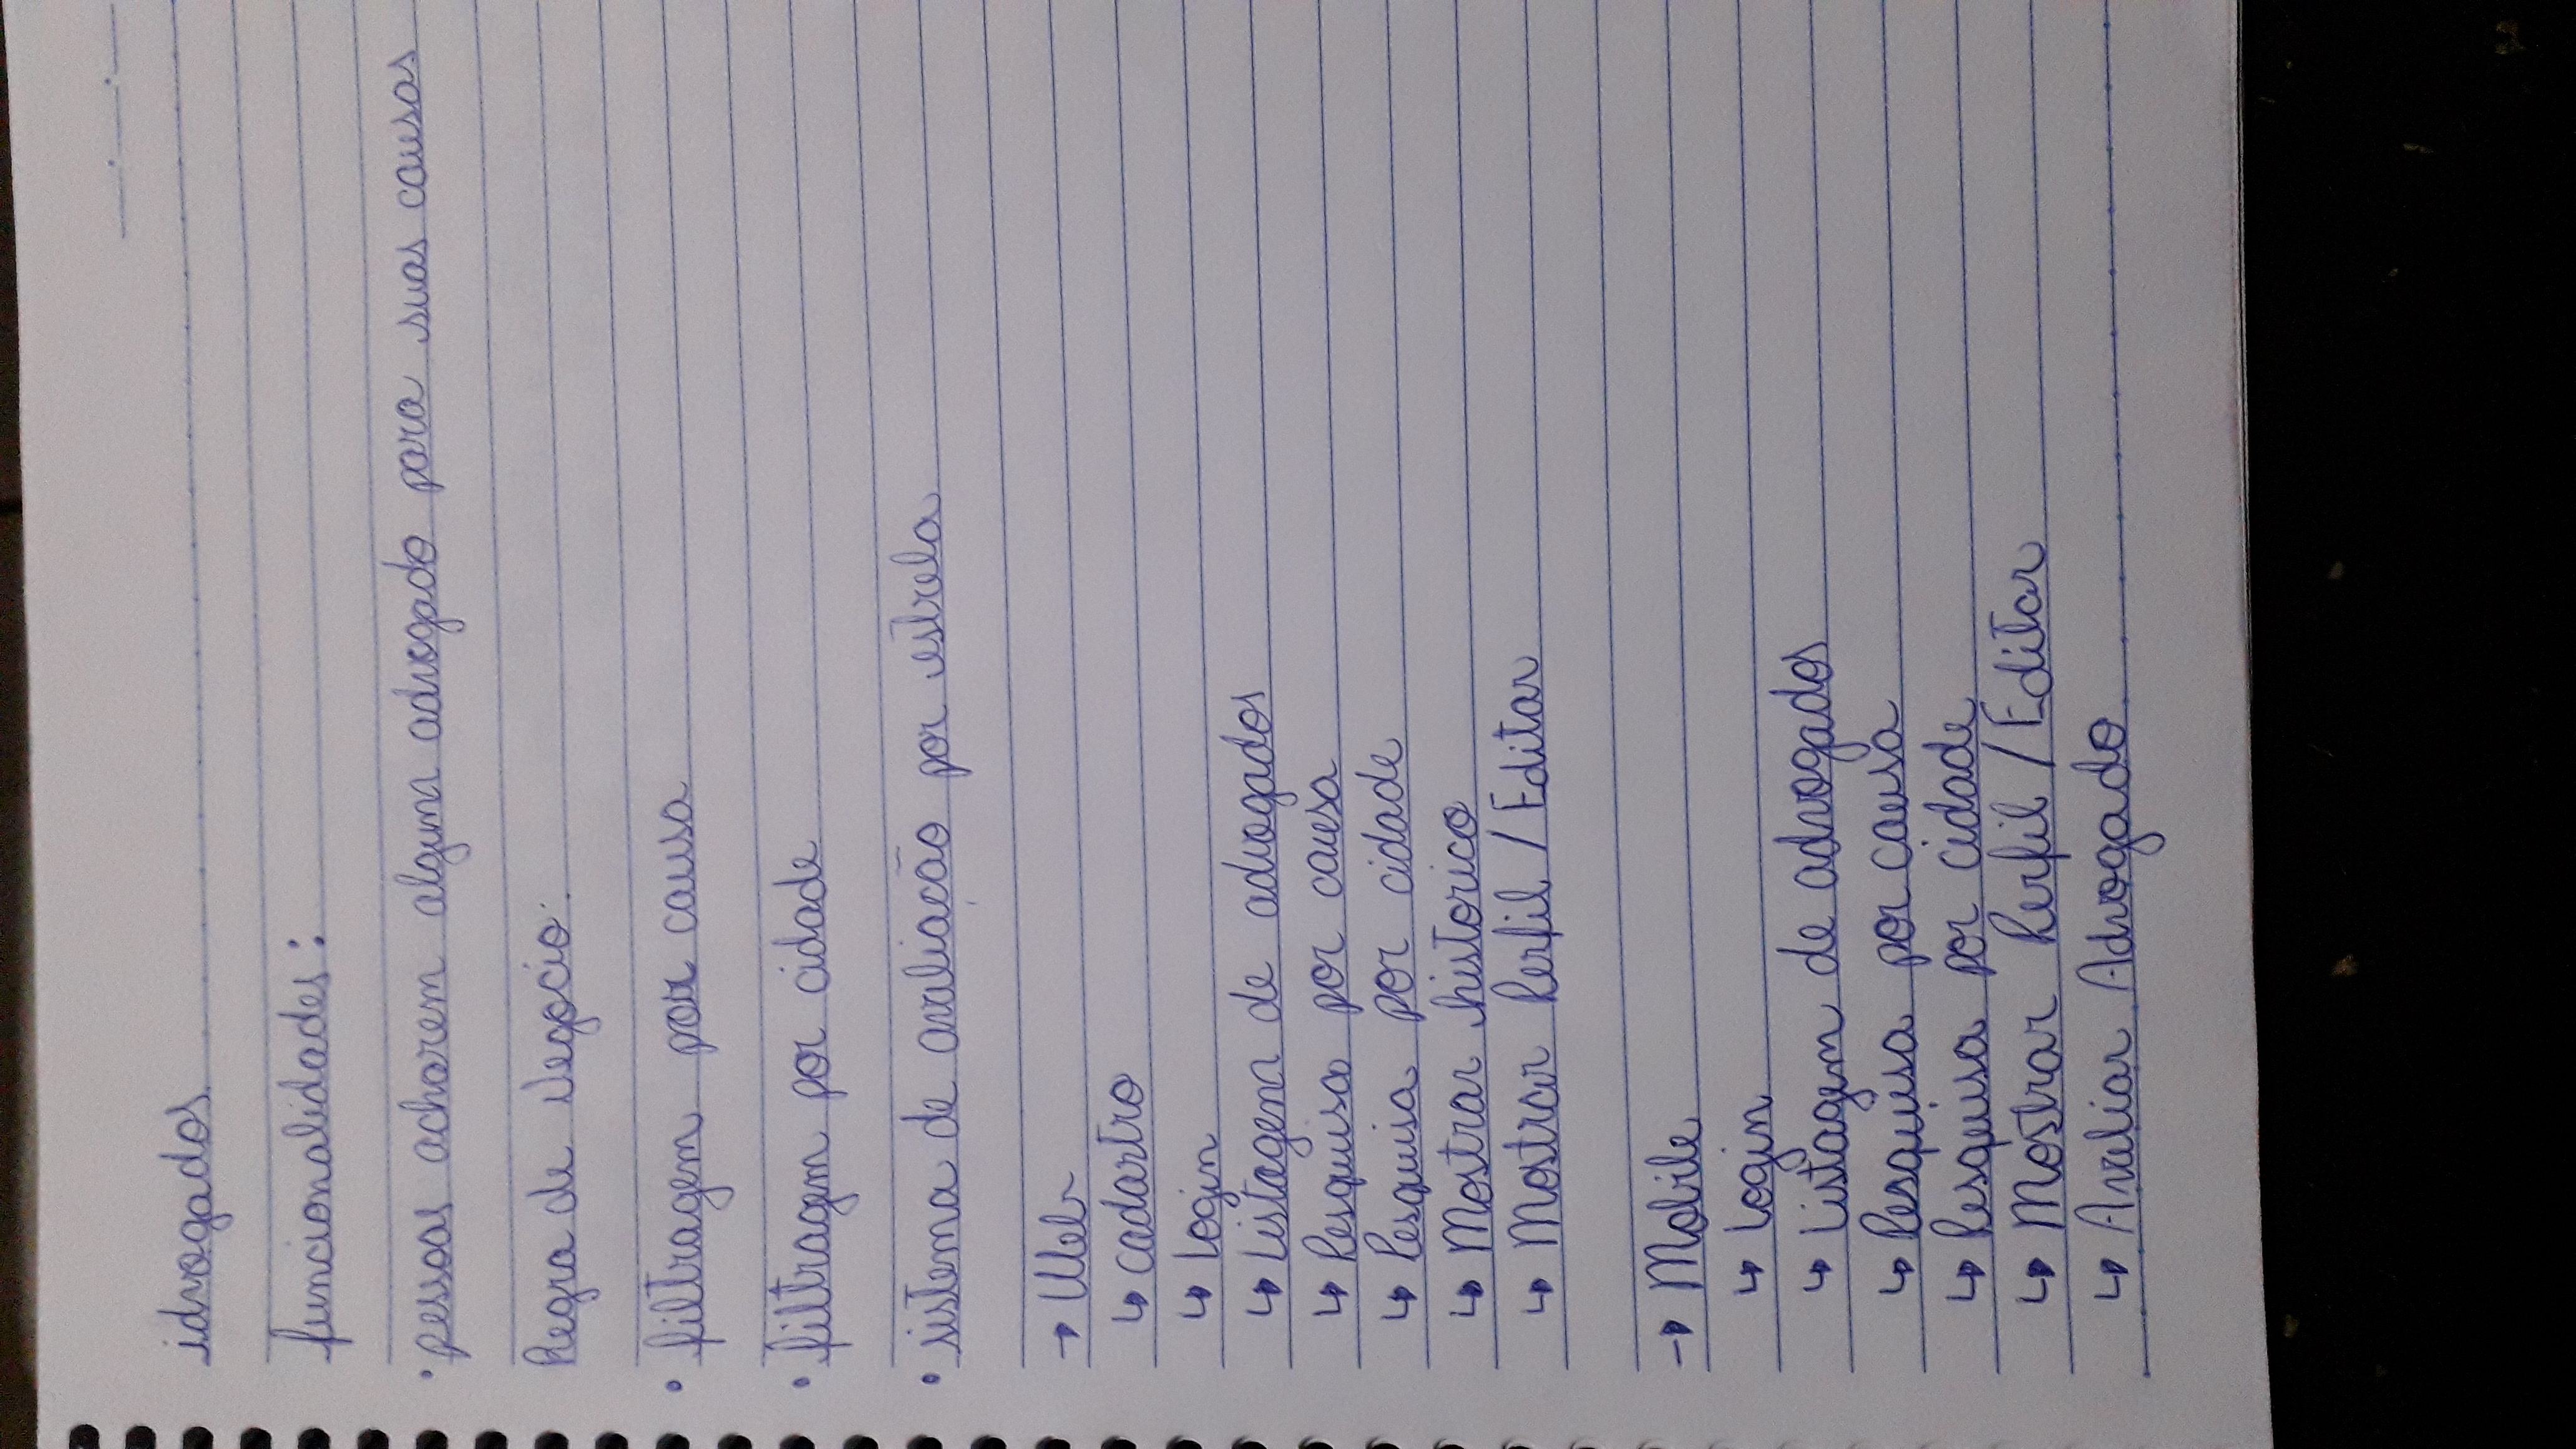 idvogados
funcionalidades:
• pessoas acharem algum advogado para suas causas
Regra de Negocio:
• filtragem por causa
• filtragem por cidade
• sistema de avaliação por estrela
→ Web
↳ cadastro
↳ Login
↳ Listagem de advogados
↳ Pesquisa por causa
↳ Pesquisa por cidade
↳ Mostrar historico
↳ Mostrar Perfil / Editar
→ Mobile
↳ Login
↳ Listagem de advogados
↳ Pesquisa por causa
↳ Pesquisa por cidade
↳ Mostrar Perfil / Editar
↳ Avaliar Advogado